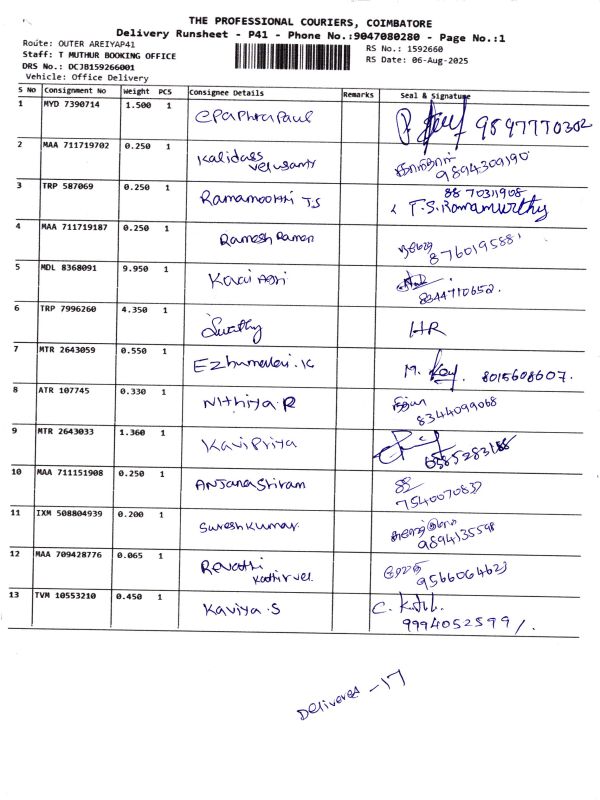 THE PROFESSIONAL COURIERS, COIMBATORE
Delivery Runsheet - P41 - Phone No.:9047080280 - Page No.:1
Route: OUTER AREIYAP41
RS No.: 1592660
Staff: T MUTHUR BOOKING OFFICE
RS Date: 06-Aug-2025
DRS No.: DCJB159266001
Vehicle: Office Delivery
S No Consignment No Weight PCS Consignee Details Remarks Seal & Signature
1 MYD 7390714 1.500 1 epaphrapaul 9597770302
2 MAA 711719702 0.250 1 Kalidass
Velusamy 9894309190
3 TRP 587069 0.250 1 Ramamoorthi TS 8870311908
T.S.Ramamurthy
4 MAA 711719187 0.250 1 Ramesh Raman 8760195881
5 MDL 8368091 9.950 1 Kovai Agri 8344710652.
6 TRP 7996260 4.350 1 Swathy HR
7 MTR 2643059 0.550 1 Ezhumalai.K M. 8015608607.
8 ATR 107745 0.330 1 Nithiya R நித்யா
8344099068
9 MTR 2643033 1.360 1 Kavi Priya
10 MAA 711151908 0.250 1 Anjana Sriram
7540070837
11 IXM 508804939 0.200 1 Suresh Kumar
9894135598
12 MAA 709428776 0.065 1 Revathi
Kathirvel. ரேவதி
9566064623
13 TVM 10553210 0.450 1 Kaviya.S C.
9994052599/.
Delivered -17